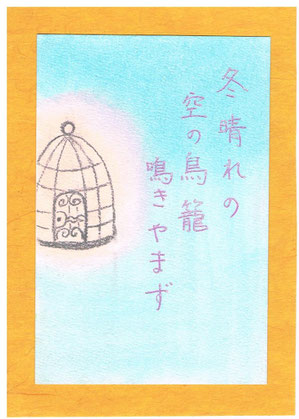 冬晴れの
空の鳥籠
鳴きやまず